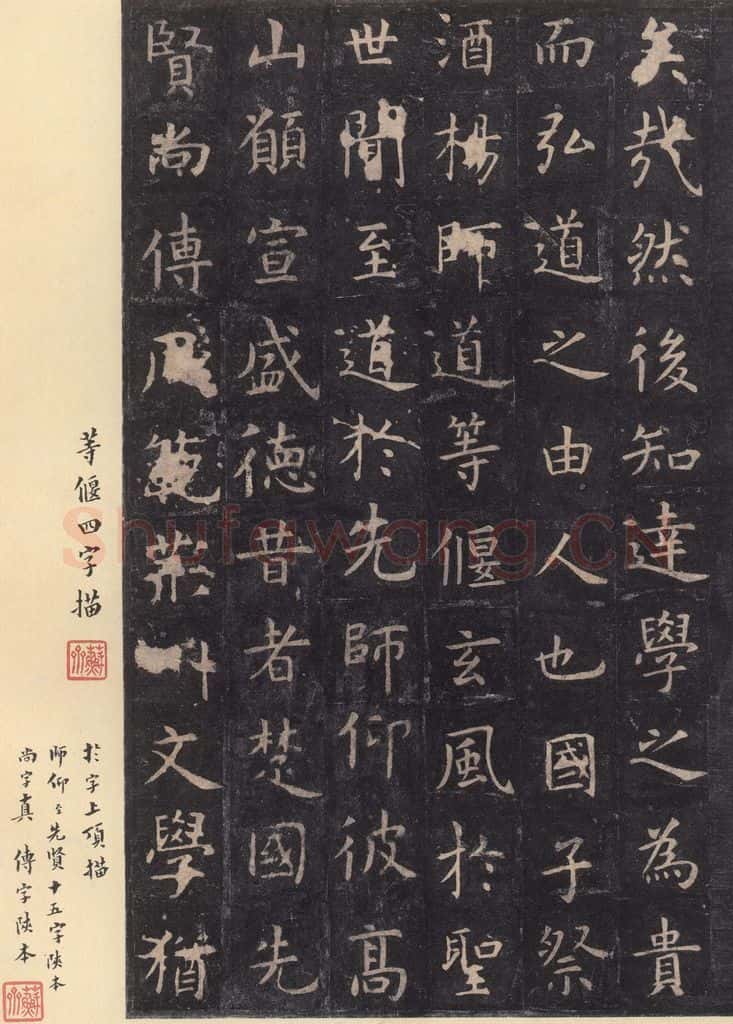 矣哉然後知達學之為貴
而弘道之由人也國子祭
酒楊師道等偃玄風於聖
世聞至道於先師仰彼高
山願宣盛德昔者楚國先
賢尚傳風範荊州文學猶
等偃四字描
於字上項描
師仰至先賢十五字陝本
尚字真 傳字陝本
Shufawang.CN